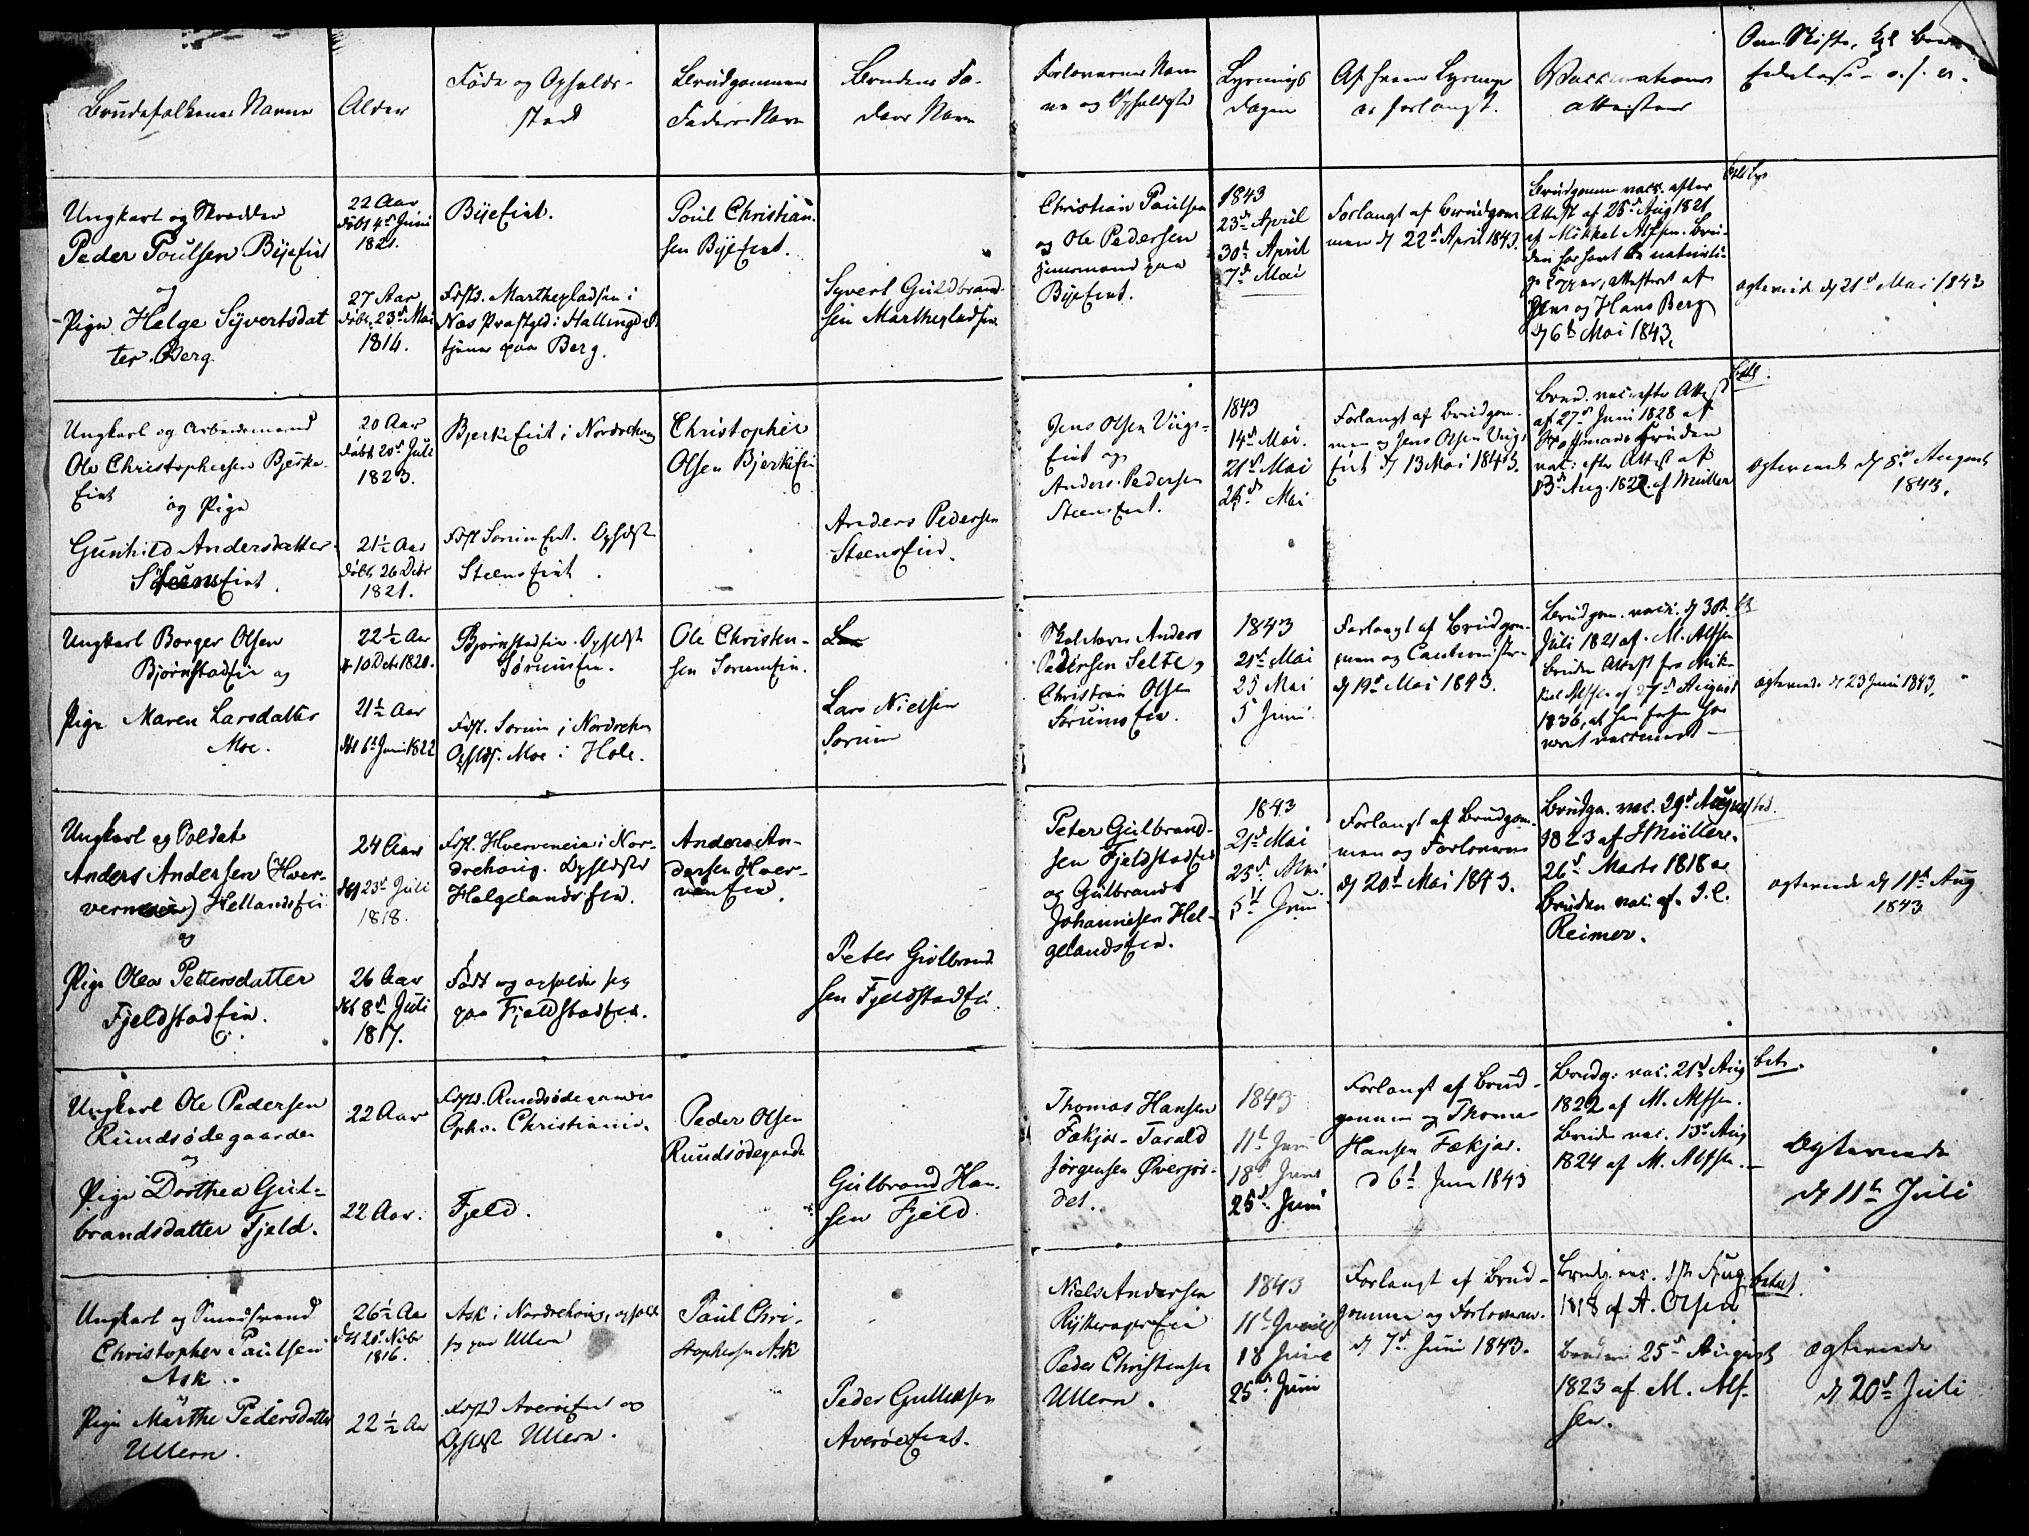 Brudefolkenes Navne
Alder
Føde og Opholds-
sted
Brudgommens
Faders Navn
Brudens Fa-
ders Navn
Forlovernes Nav
ne og Opholdsted
Lysnings
dagen
Af hvem Lysningen
er forlangt.
Vaccinations
attester
Om Skifte,

Ungkarl og Skrædder
Peder Poulsen ByeEiet
og
Pige Helge Syvertsdat
ter Berg
22 Aar
døbt 4de Juni
1821.
27 Aar
døbt 23de Mai
1814.
ByeEiet.
Født. Marthepladsen i
Næs Præstgjeld i Hallingdal
tjener paa Berg.
Poul Christian
sen ByeEiet.
Syvert Guldbrand-
sen Marthepladsen
Christian Paulsen
og Ole Pedersen
Huusmænd paa
ByeEiet.
1843
23de April
30te April
7de Mai
Forlangt af Brudgom
men d 22de April 1843.
Brudgommen vacc. efter
Attest af 25de Aug 1821
af Mikkel Alfsen. Bru-
den har havt de naturli-
ge Kopper, attesteret af
Jens og Hans Berg
d 6te Mai 1843.
ægteviede d 21de Mai 1843

Ungkarl og Arbeidsmand
Ole Christophersen Bjerke-
Eiet
og Pige
Gunhild Andersdatter
SteensEiet.
20 Aar
døbt 20de Juli
1823.
21½ Aar
døbt 26 Decbr
1821.
BjerkeEiet i Norderhov
Født SørumEiet. Opholdst
SteensEiet.
Christopher
Olsen BjerkeEie
Anders Pedersen
SteensEie.
Jens Olsen Viigs-
Eiet og
Anders Pedersen
SteensEiet.
1843
14de Mai.
21de Mai
25de Mai
Forlangt af Brudgom-
men og Jens Olsen Viigs
Eiet d 13 Mai 1843.
Brud. vac. efter Attest
af 27de Juni 1828 af
Hoffmand. Bruden
vac: efter Attest af
13de Aug. 1822 af Müller
ægteviede d 8de August
1843.

Ungkarl Borger Olsen
BjørnstadEie og
Pige Maren Larsdatter
Moe.
22½ Aar
10 Dec 1820.
21½ Aar
døbt 6te Juni 1822
BjørnstadEie. Opholdst
SørumEie.
Født. Sørum i Norderhov
Opholdst. Moe i Hole.
Ole Christen-
sen SørumEie.
Lars Nielsen
Sørum
Skoleholder Anders
Pedersen Selte,
Christian Olsen
SørumsEie.
1843
21de Mai
25 Mai
5 Juni
Forlangt af Brudgom-
men og Cautionister
d 19de Mai 1843.
Brudgom. vacc. d 30te
Juli 1821 af M. Alfsen
Bruden Attest fra Mik-
kel Alfsen af 27de August
1836, at hun forhen har
været vaccineret
ægteviede d 23 Juni 1843.

Ungkarl og Soldat
Anders Andersen (Hver-
) HellandsEie
og
Pige Olea Pettersdatter
FjeldstadEie.
24 Aar
døbt 23de Juli
1818.
26 Aar
døbt 8de Juli
1817.
Født. Hverveneie i Nor-
derhoug. Opholdsted
HelgelandsEie.
Født og opholder sig
paa FjeldstadEie.
Anders An-
dersen Hver-
venEie.
Peter Gulbrand
sen FjeldstadEie
Peter Gulbrand-
sen FjeldstadEie
og Gulbrand
Johannesen Hel-
gelandsEie.
1843
21de Mai
25de Mai
5te Juni
Forlangt af Brudgom-
men og Forloverne
d 20de Mai 1843.
Brudgom. vac. 29de August
1823 af J Müller.
26de Marts 1818
Bruden vac. af J. C.
Reimer.
ægteviede d 11te Aug
1843

Ungkarl Ole Pedersen
Rundsødegaarden
og
Pige Dorthea Gul-
brandsdatter Fjeld.
22 Aar
22 Aar.
Født. Rundsødegaarden
Opho. Christiania.
Fjeld.
Peder Olsen
Rundsødegaarde
Gulbrand Han-
sen Fjeld.
Thomas Hansen
Fækjær - Tarald
Jørgensen Øvergs-
det.
1843
11te Juni
18de Juni
25de Juni
Forlangt af Brud-
gommen og Thomas
Hansen Fækjær.
d 6te Juni 1843
Brudg: vac. 21de Aug
1822 af M. Alfsen.
Bruden vac. 13de Aug
1824 af M. Alfsen.
bet.
Ægteviede
d 11te Juli

Ungkarl og Smedsvend
Christopher Paulsen
Ask.
og
Pige Marthe Pedersdatter
Ullern.
26½ Aar
døbt 20de Novbr
1816.
22½ Aar
Ask i Norderhoug, ophold
sig paa Ullern
Født AverøeEiet og
Opholdst Ullern.
Paul Chri-
stophersen Ask
Peder Gulliksen
AverøeEiet.
Niels Andersen
RytteragerEie
Peder Christensen
Ullern.
1843
11te Juni
18 Juni
25de Juni
Forlangt af Brud-
gommen og Forloverne
d 7de Juni 1843.
Brudg. vac. 1ste Aug
1818 af A. Olsen
Bruden 25de August
1823 af M. Alf-
sen.
betalt.
Ægteviede
d 20de Juli